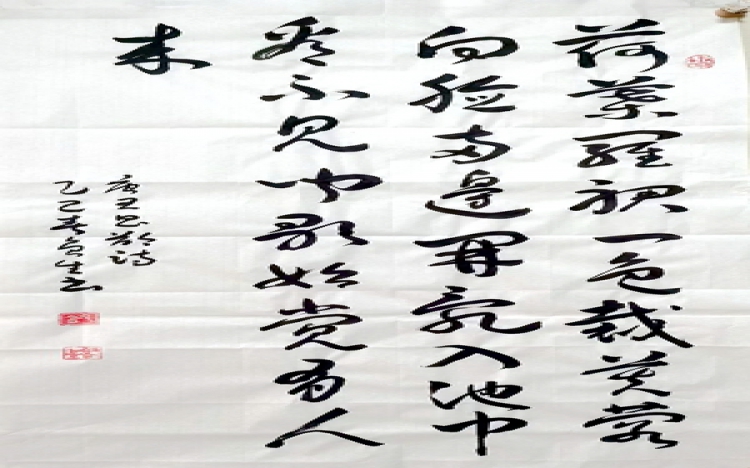 荷葉羅裙一色裁芙蓉
向脸两邊開乱入池中
看不见闻歌始觉有人
来
唐王昌龄诗
乙巳春生书